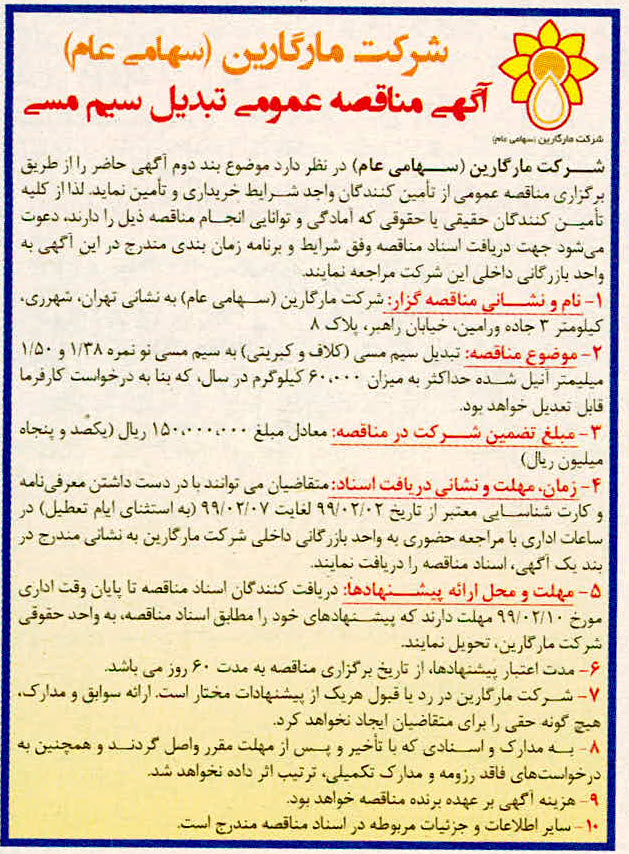 شرکت مارگارین (سهامی عام)
آگهی مناقصه عمومی تبدیل سیم مسی
شرکت مارگارین (سهامی عام)
شرکت مارگارین (سهامی عام) در نظر دارد موضوع بند دوم آگهی حاضر را از طریق
برگزاری مناقصه عمومی از تأمین کنندگان واجد شرایط خریداری و تأمین نماید. لذا از کلیه
تأمین کنندگان حقیقی یا حقوقی که آمادگی و توانایی انجام مناقصه ذیل را دارند، دعوت
می‌شود جهت دریافت اسناد مناقصه وفق شرایط و برنامه زمان بندی مندرج در این آگهی به
واحد بازرگانی داخلی این شرکت مراجعه نمایند.
۱- نام و نشانی مناقصه گزار: شرکت مارگارین (سهامی عام) به نشانی تهران، شهرری،
کیلومتر ۳ جاده ورامین، خیابان راهبر، پلاک ۸
۲- موضوع مناقصه: تبدیل سیم مسی (کلاف و کبریتی) به سیم مسی نو نمره ۱/۳۸ و ۱/۵۰
میلیمتر آنیل شده حداکثر به میزان ۶۰,۰۰۰ کیلوگرم در سال، که بنا به درخواست کارفرما
قابل تعدیل خواهد بود.
۳- مبلغ تضمین شرکت در مناقصه: معادل مبلغ ۱۵۰,۰۰۰,۰۰۰ ریال (یکصد و پنجاه
میلیون ریال)
۴- زمان، مهلت و نشانی دریافت اسناد: متقاضیان می توانند با در دست داشتن معرفی‌نامه
و کارت شناسایی معتبر از تاریخ ۹۹/۰۲/۰۲ لغایت ۹۹/۰۲/۰۷ (به استثنای ایام تعطیل) در
ساعات اداری با مراجعه حضوری به واحد بازرگانی داخلی شرکت مارگارین به نشانی مندرج در
بند یک آگهی، اسناد مناقصه را دریافت نمایند.
۵- مهلت و محل ارائه پیشنهادها: دریافت کنندگان اسناد مناقصه تا پایان وقت اداری
مورخ ۹۹/۰۲/۱۰ مهلت دارند که پیشنهادهای خود را مطابق اسناد مناقصه، به واحد حقوقی
شرکت مارگارین، تحویل نمایند.
۶- مدت اعتبار پیشنهادها، از تاریخ برگزاری مناقصه به مدت ۶۰ روز می باشد.
۷- شرکت مارگارین در رد یا قبول هریک از پیشنهادات مختار است. ارائه سوابق و مدارک،
هیچ گونه حقی را برای متقاضیان ایجاد نخواهد کرد.
۸- به مدارک و اسنادی که با تأخیر و پس از مهلت مقرر واصل گردند و همچنین به
درخواست‌های فاقد رزومه و مدارک تکمیلی، ترتیب اثر داده نخواهد شد.
۹- هزینه آگهی بر عهده برنده مناقصه خواهد بود.
۱۰- سایر اطلاعات و جزئیات مربوطه در اسناد مناقصه مندرج است.